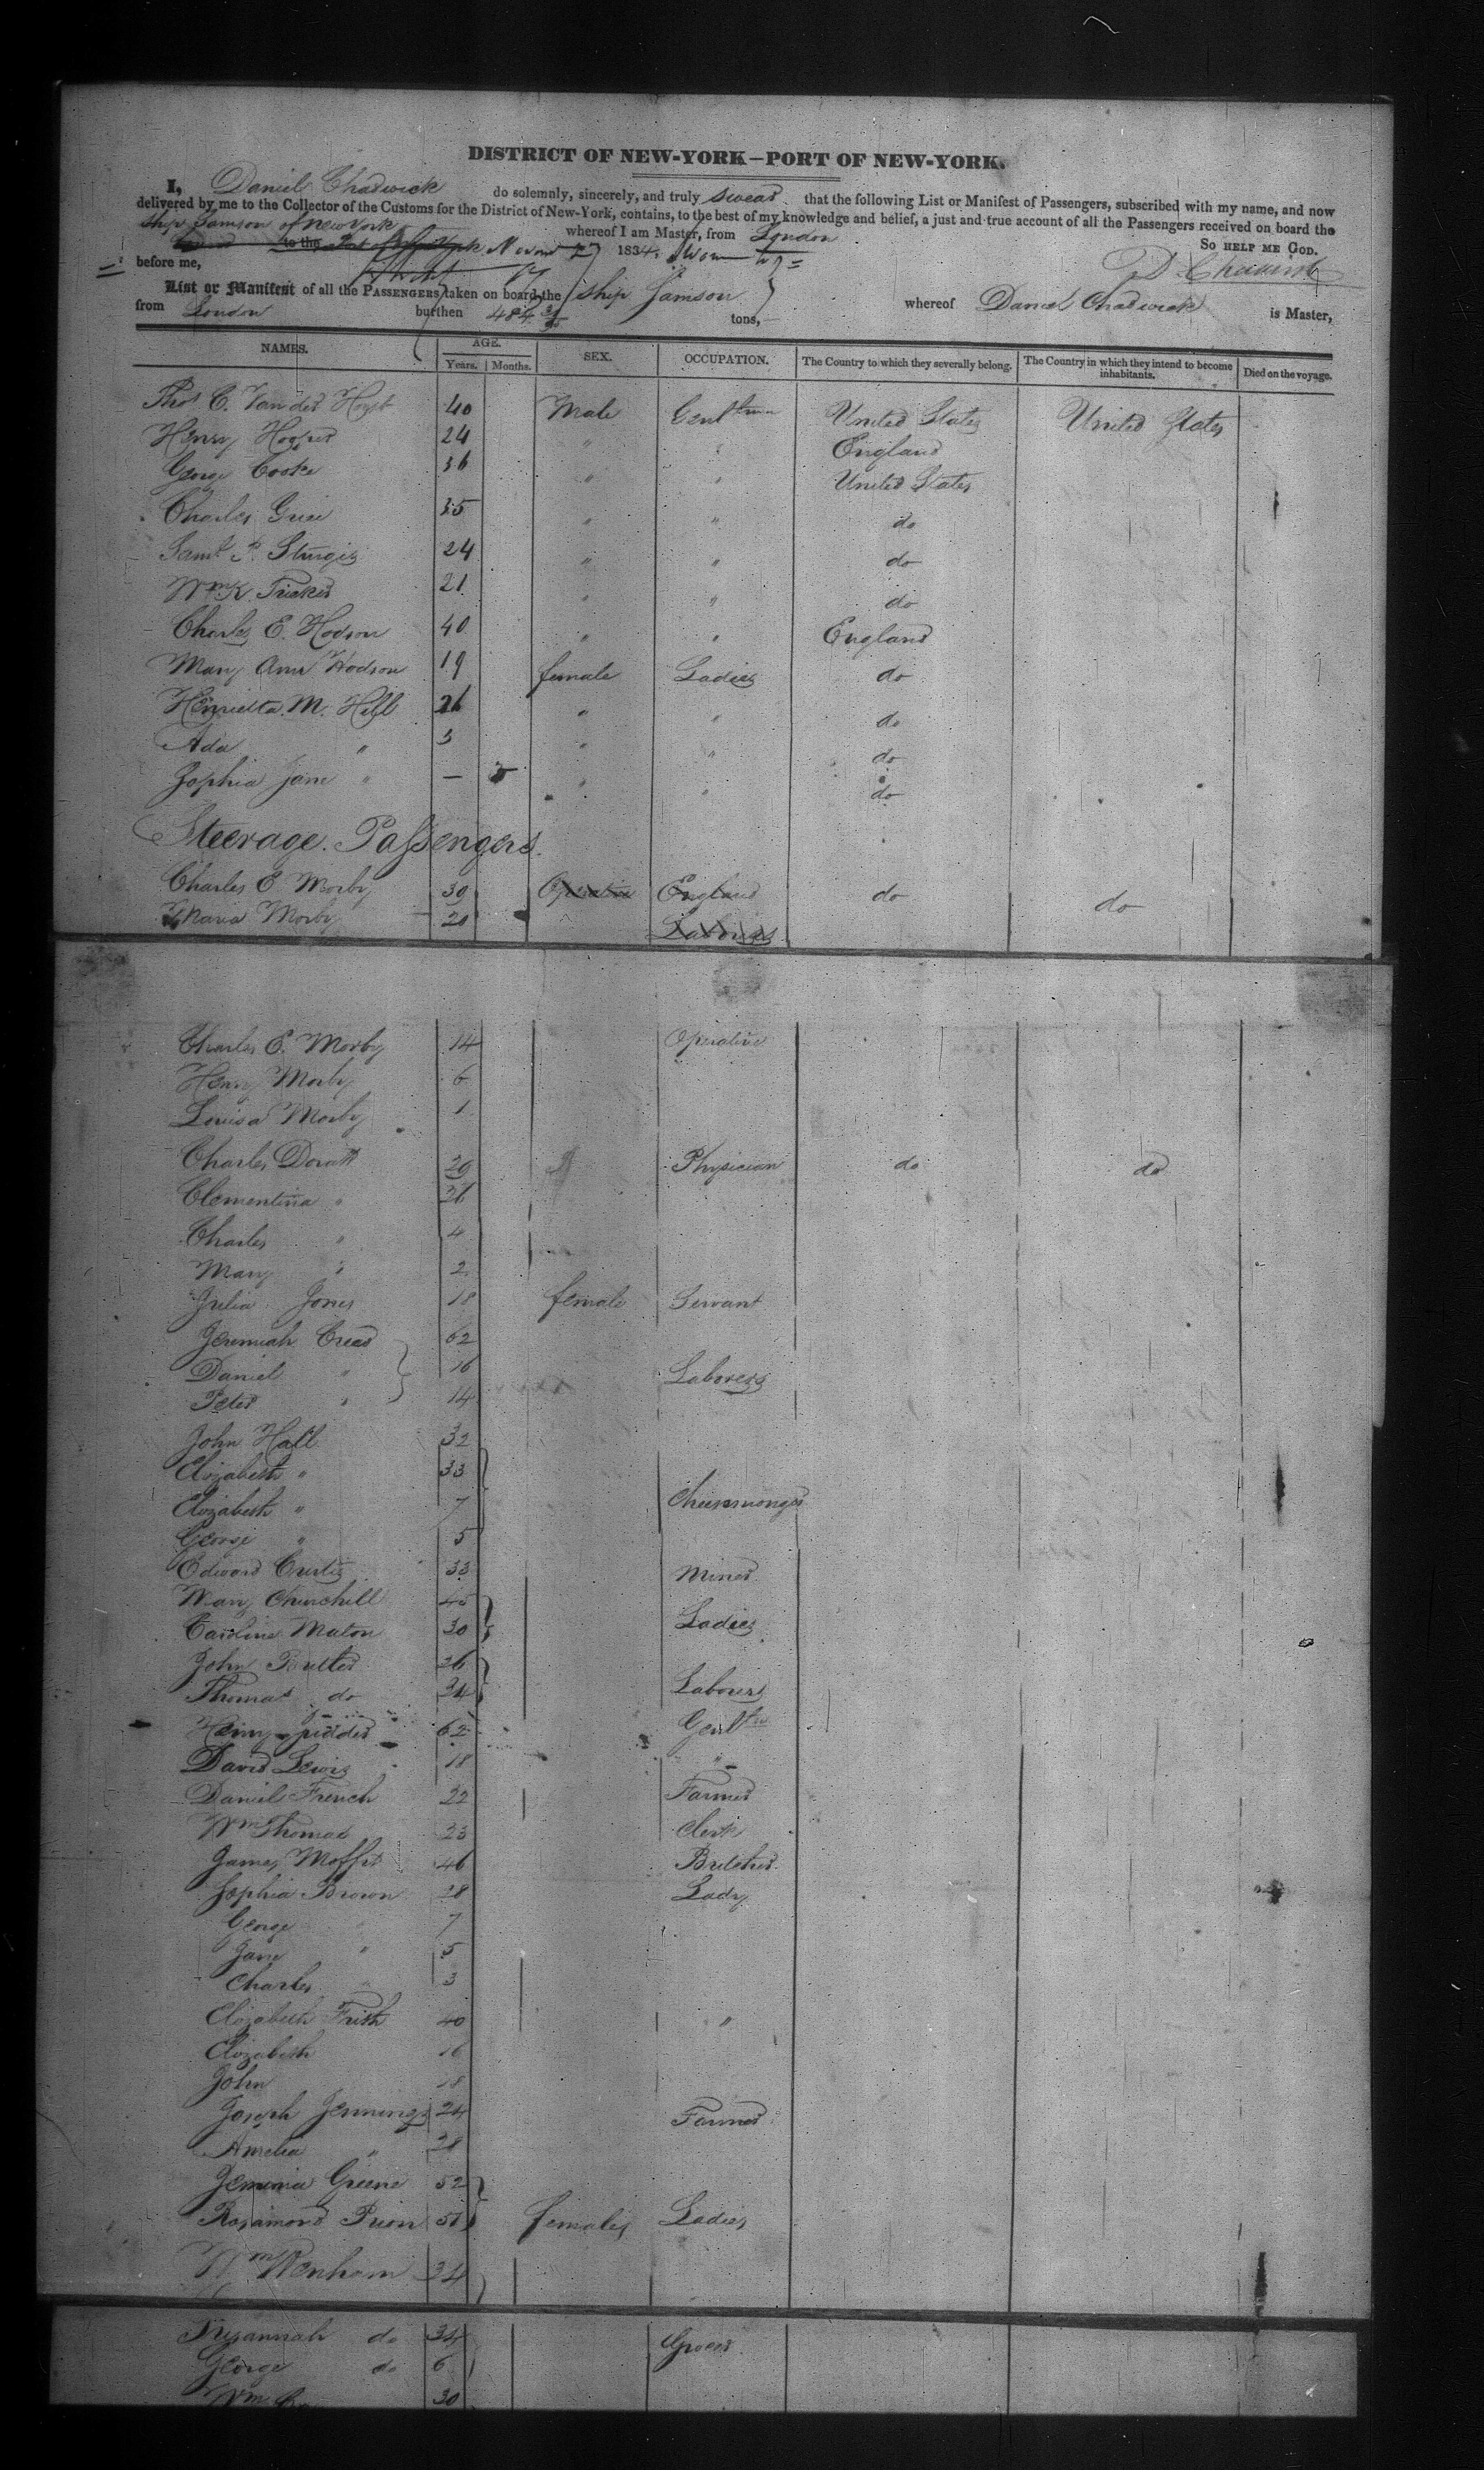 DISTRICT OF NEW-YORK—PORT OF NEW-YORK.
I, Daniel Chadwick do solemnly, sincerely, and truly swear that the following List or Manifest of Passengers, subscribed with my name, and now
delivered by me to the Collector of the Customs for the District of New-York, contains, to the best of my knowledge and belief, a just and true account of all the Passengers received on board the
ship Samson of New York whereof I am Master, from London
to the 1834. So HELP ME GOD.
before me, D Chadwick
List or Manifest of all the PASSENGERS taken on board the ship Samson whereof Daniel Chadwick is Master,
from London burthen 484 tons,
NAMES. AGE. SEX. OCCUPATION. The Country to which they severally belong. The Country in which they intend to become inhabitants. Died on the voyage.
Years. Months.
40 Male Gentlemen United States United States
Henry Hooper 24 " " England
George Cooke 36 " " United States
Charles 35 " " do
Saml P. Sturgis 24 " " do
Wm K. 21 " " do
Charles E. Hodson 40 " " England
Mary Ann Hodson 19 female Ladies do
Henrietta M. Hill 26 " " do
Ada " 3 " " do
Sophia Jane " — " " do
Steerage Passengers
Charles E Morby 39 Operative England do do
Maria Morby 20 Labourers
Charles E. Morby 14 Operative
Henry Morby 6
Louisa Morby 1
Charles Doratt 29 Physician do do
Clementina " 26
Charles " 4
Mary " 2
Julia Jones 18 female Servant
Jeremiah Cread 62
Daniel " 16 Laborers
Peter " 14
John Hall 32
Elizabeth " 33
Elizabeth " 7 Cheesemonger
George " 5
Edward Curtis 33 Miner
Mary Churchill 45
Caroline Maton 30 Ladies
John Butler 26
Thomas do 34 Laborers
Henry 62 Gentln
David Lewis 18 "
Daniel French 22 Farmer
Wm Thomas 23 Clerk
James Moffit 46 Butcher
Sophia Brown 28 Lady
George " 7
Jane " 5
Charles " 3
Elizabeth Frith 40 "
Elizabeth 16
John 18
Joseph Jennings 24 Farmer
Amelia " 28
Jemima Greene 52
Rosamond Prion 51 females Ladies
Wm Wenham 34
Susannah do 34 Grocer
George do 6
Wm 30